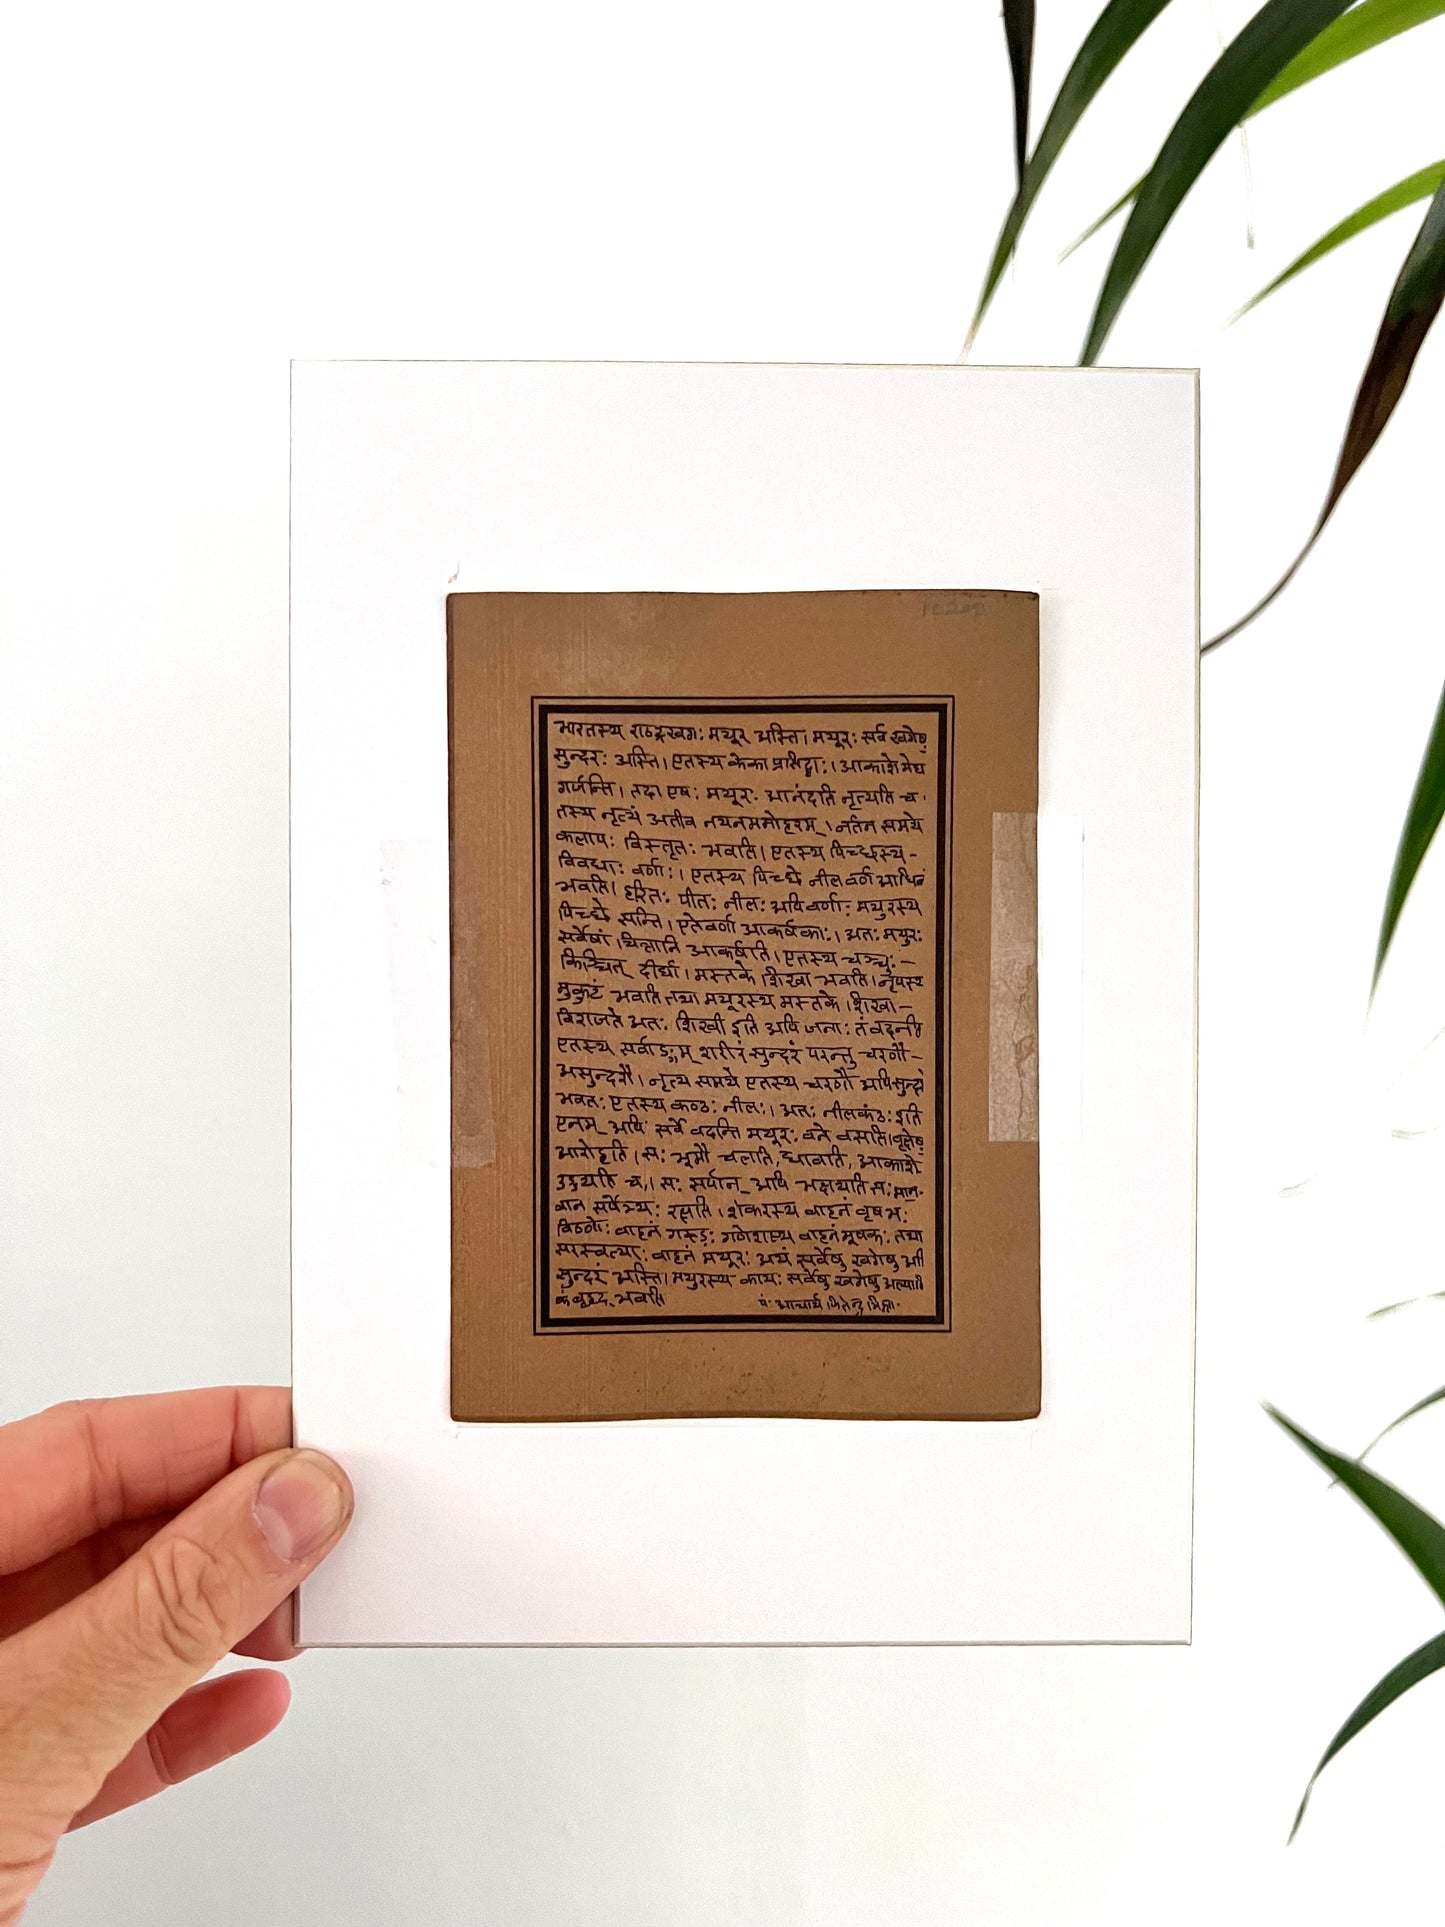 भारतस्य राष्ट्रखगः मयूर अस्ति। मयूरः सर्व खगेषु
सुन्दरः अस्ति। एतस्य केका प्रसिद्धाः। आकाशे मेघ
गर्जन्ति। तदा एषः मयूरः आनंदति नृत्यति च।
तस्य नृत्यं अतीव नयनमनोहरम्। नर्तन समये
कलापः विस्तृतः भवति। एतस्य पिच्छस्य-
विवधाः वर्णाः। एतस्य पिच्छे नीलवर्ण
भवति। हरितः पीतः नीलः अपि वर्णाः मयुरस्य
पिच्छे सन्ति। एतेवर्णा आकर्षकाः। अतः मयुरः
सर्वेषां चित्तानि आकर्षति। एतस्य चञ्चुः-
किञ्चित् दीर्घा। मस्तके शिखा भवति। नृपस्य
मुकुटं भवति तथा मयूरस्य मस्तके शिखा-
विराजते अतः शिखी इति अपि जनाः तं वदन्ति
एतस्य सर्वाङ्गम् शरीरं सुन्दरं परन्तु चरणौ-
असुन्दरौ। नृत्य समये एतस्य चरणौ अपि सुन्दरं
भवतः एतस्य कण्ठः नीलः। अतः नीलकंठः इति
एनम् अपि सर्वे वदन्ति मयूरः वने वसति। वृक्षेषु
आरोहति। सः भूमौ चलति, धावति, आकाशे
उड्डयति च,। सः सर्पान् अपि भक्षयति सः
सर्पेभ्यः रक्षति। शंकरस्य वाहनं वृषभः
विष्णोः वाहनं गरूड़ः गणेशस्य वाहनं मूषकः तथा
सरस्वत्याः वाहनं मयूरः अयं सर्वेषु खगेषु अति
सुन्दरं अस्ति। मयुरस्य कायः सर्वेषु खगेषु
भवति
पं. आचार्य जितेन्द्र मिश्रा.